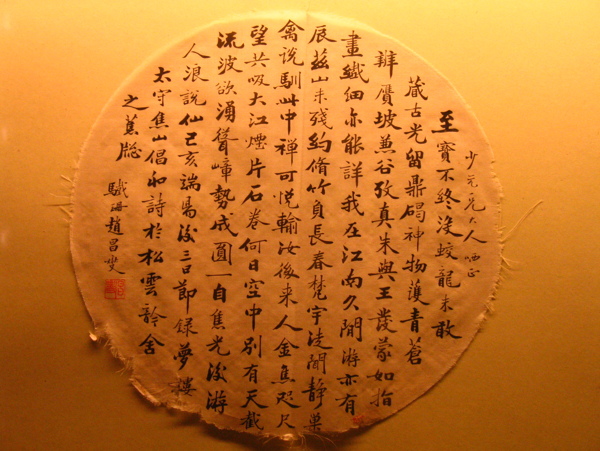 兄大人哂正
至寶不終沒蛟龍未敢
藏古光留鼎碣神物護青蒼
辨贗坡兼谷攷真朱與王發蒙如指
畫纖細亦能詳我在江南久閒游亦有
辰茲山未殘約脩竹負長春梵宇閒靜巢
禽說馴此中禪可悅輸汝後来人金焦咫尺
望共吸大江煙片石卷何日空中别有天截
流波欲湧聳嶂勢成圓一自焦光後游
人浪說仙己亥端昜後三日節録夢樓
太守焦山倡和詩於松雲舍
之蕉牕
趙昌燮